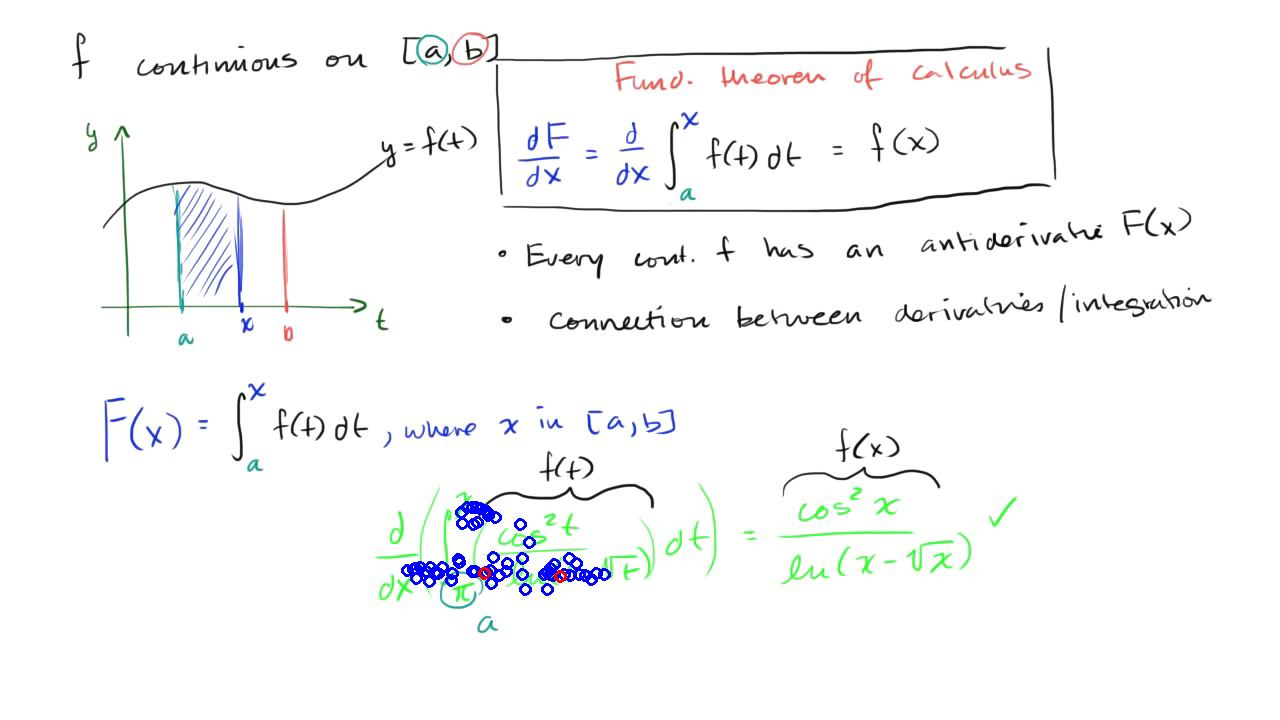 f continuous on [a, b]
Fund. theorem of calculus
dF/dx = d/dx ∫_a^x f(t) dt = f(x)
y
y = f(t)
a x b t
• Every cont. f has an antiderivative F(x)
• connection between derivatives / integration
F(x) = ∫_a^x f(t) dt , where x in [a, b]
f(t) f(x)
d/dx ( ∫_π^x ( cos² t / √t ) dt ) = cos² x / ln(x - √x) ✓
a